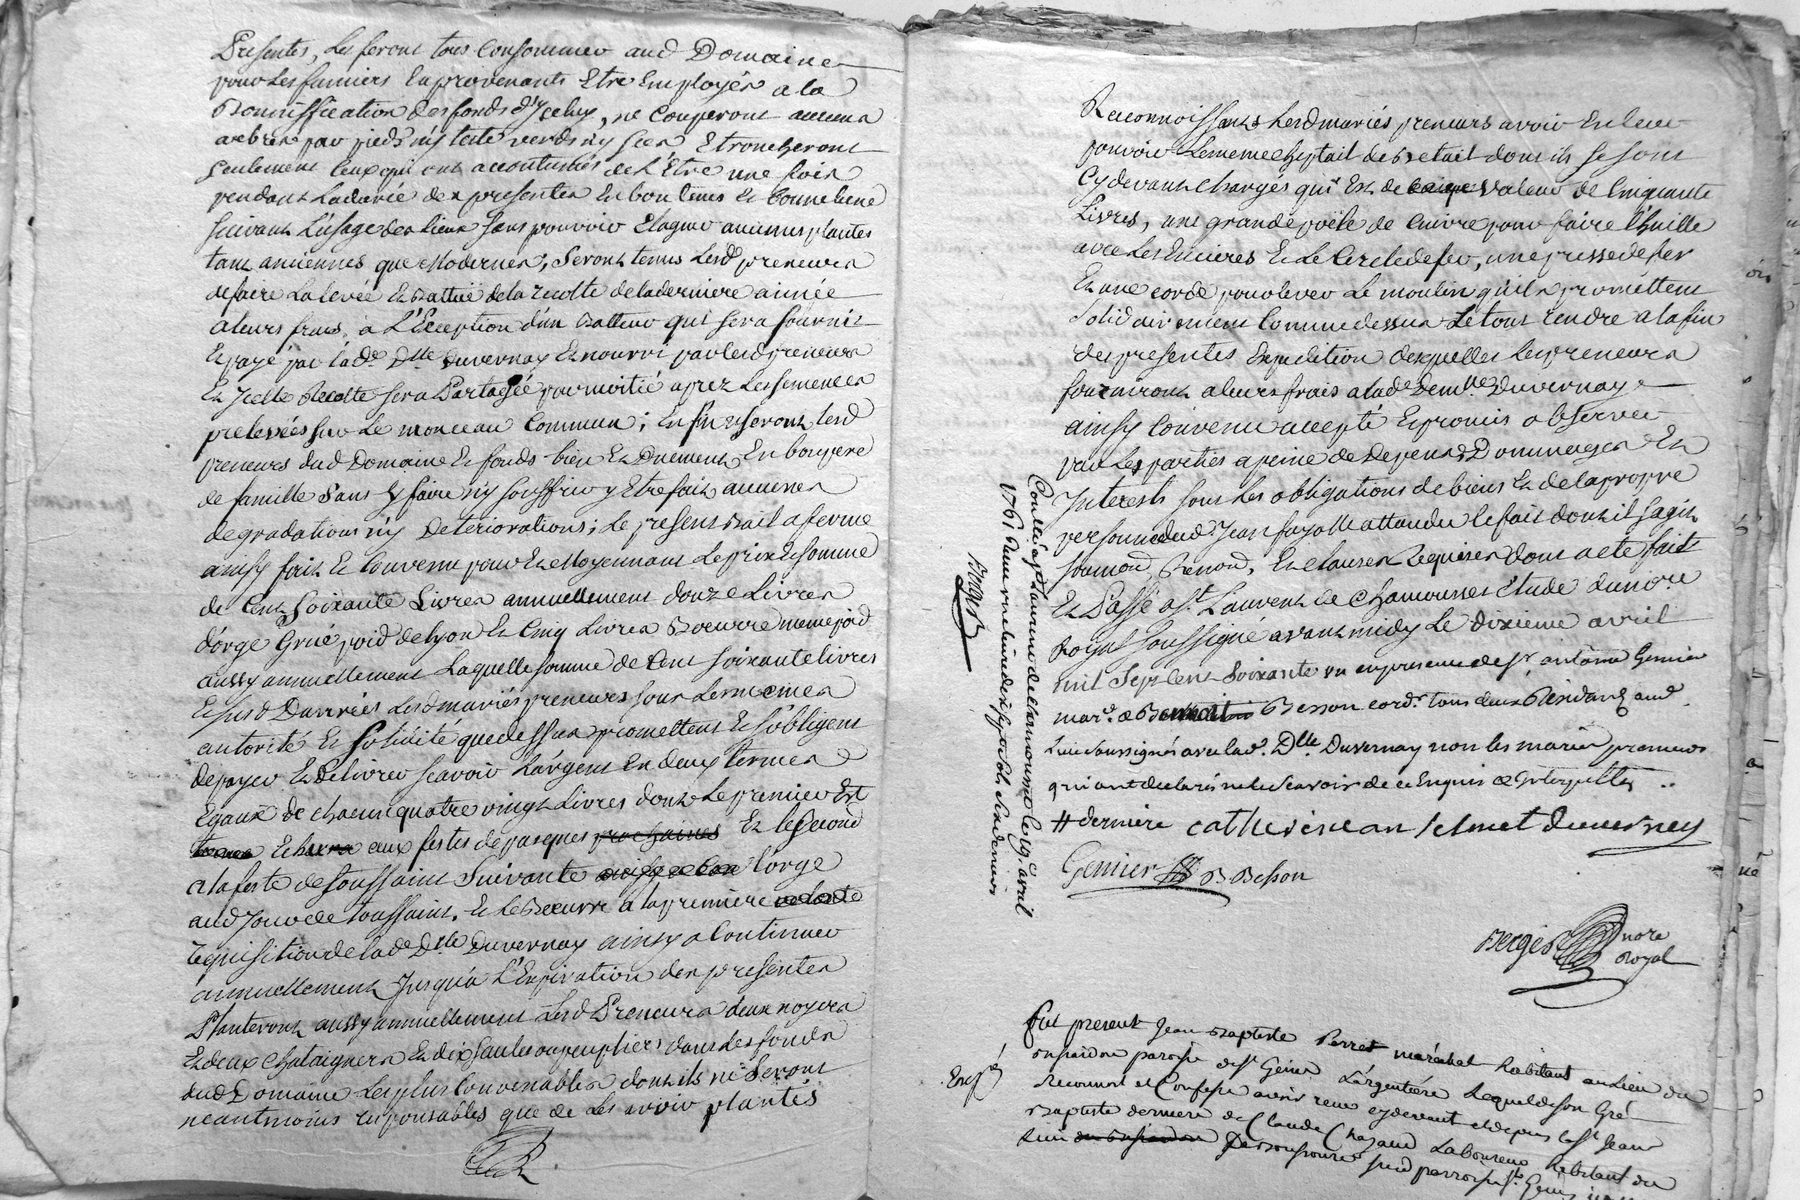 Presentes, les feront tous Consommer aud Domaine
pour les fumiers En provenants Etre Employés a la
Bonniffication des fonds d'Yceluy, ne Couperont aucuns
arbres par pied ny teste verds ny secs Etroncheront
seulement Ceux qui ont accoutumés de l'Etre une fois
pendant La durée des presentes En bon tems Et bonne lune
suivant L'usage des lieux sans pouvoir Elaguer aucunes plantes
tant anciennes que Modernes, Seront tenus Lesd preneurs
de faire La levée Et Battue de la recolte de la derniere année
a leurs frais, a L'Exception d'un Batteur qui sera fournit
Et payé par lade Dlle Duvernay Et nourri par lesd preneurs
Et Jcelle Recolte sera Partagée par moitié aprez Les semences
prelevées sur Le monceau Commun ; En fin useront lesd
preneurs dud Domaine Et fonds bien Et Duement, En bon pere
de famille sans y faire ny souffrir y Etre fait aucunes
degradations ny Deteriorations ; Le present Bail a ferme
ainsy fait Et Convenu pour Et Moyennant Le prix Et somme
de Cent soixante Livres annuellement douze Livres
d'orge Grué poid de Lyon Et Cinq Livres Boeurre meme poid
aussy annuellement Laquelle somme de Cent soixante livres
Et susd Danrées Lesd mariés preneurs sous Les memes
autorité Et solidité que dessus promettent Et s'obligent
de payer Et Delivrer scavoir L'argent En deux termes
Egaux de chacun quatre vingt Livres dont Le premier Est
Echerra aux festes de pasques prochaines Et le second
a la feste de toussaint suivante L'orge
aud Jour de toussaint, Et Le Boeurre a la premiere volonte
requisition de lade Dlle Duvernay ainsy a Continuer
annuellement Jusqu'a L'Expiration des presentes
Planteront aussy annuellement Lesd Preneurs deux noyers
Et deux Chataigners Et dix saules ou peupliers dans Les fonds
dud Domaine Les plus Convenables dont ils ne seront
neantmoins responsables que de Les avoir plantés
Reconnoissants Lesd mariés preneurs avoir En leur
pouvoir Le meme Cheptail de Betail dont ils se sont
Cy devant Chargés qui Est de valeur de Cinquante
Livres, une grande poële de Cuivre pour faire l'huille
avec Les Et Le Cercle de fer, une presse de fer
Et une corde pour lever Le moulin qu'ils promettent
Solidairement Comme dessus Le tout rendre a la fin
des presentes Expedition desquelles Les preneurs
fourniront a leurs frais a lade Demlle Duvernay
ainsy Convenu accepté Et promis observer
par Les parties a peine de Depens Dommages Et
Interests sous Les obligations de biens Et de la propre
personne dud Jean fayolle attandu le fait dont il s'agit
soumon, Renon, Et clauses Requises dont acte fait
Et Passé a St Laurent de Chamousset Etude du nore
Royal soussigné avant midy Le dixieme avril
mil sept Cent soixante un en presence de sr antoine Genier
mard & Besson cordr tous deux Residants aud
Lieu soussignés avec lad. Dlle Duvernay non les mariés preneurs
qui ont declarés ne le scavoir de ce Enquis & Interpellés ..
# derniere catherine anselmet Duvernay
Genier B Besson
Bergés nore
Royal
Coullé a St Laurent de Chamousset le 19e avril
1761
Bergés
Expé
fut present Jean Baptiste Perret maréchal habitant au Lieu du
paroisse de St Genis L'argentiere Lequel de son Gré
reconnoit et Confesse avoir receu cy devant et depuis la St Jean
Baptiste derniere de Claude Chazaud Laboureur habitant du